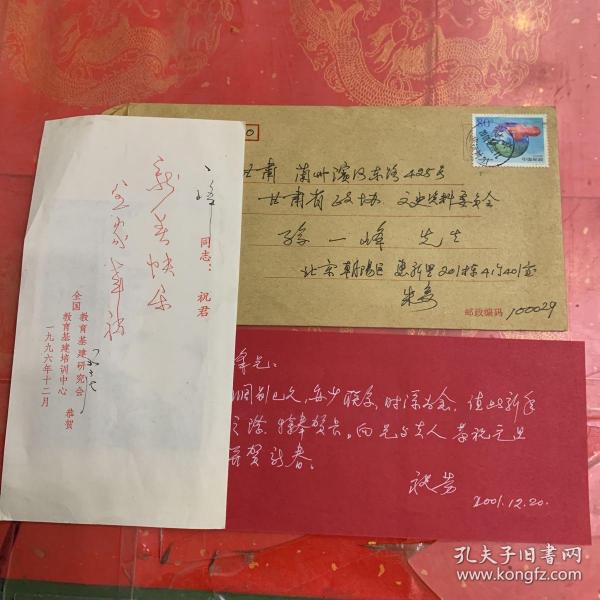 80分
中国邮政
甘肃 兰州滨河东路425号
甘肃省政协 文史资料委员会
一峰 先生
北京朝阳区惠新里201栋4门401室
邮政编码 100029
同志：祝君
新春快乐
全家幸福
全国教育基建研究会
教育基建培训中心
恭贺
一九九六年十二月
峰兄：
阔别已久，每少联系，时深为念。值此新年
之际，特奉贺卡，向兄与夫人恭祝元旦
并贺新春。
2001.12.20.
孔夫子旧书网
www.kongfz.com